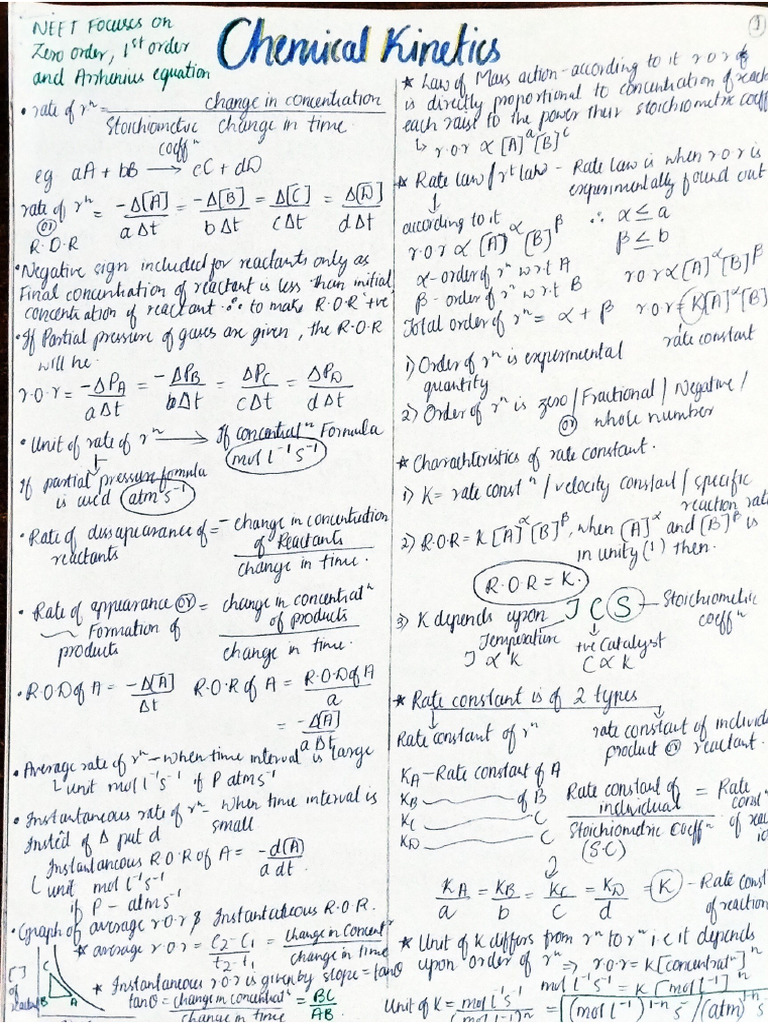 1
NEET Focuses on
Zero order, 1st order
and Arrhenius equation
Chemical Kinetics
• rate of rⁿ = change in concentration
Stoichiometric coeffⁿ change in time.
eg aA + bB ⟶ cC + dD
rate of rⁿ = -Δ[A]/aΔt = -Δ[B]/bΔt = Δ[C]/cΔt = Δ[D]/dΔt
or
R.O.R
• Negative sign included for reactants only as
Final concentration of reactant is less than initial
concentration of reactant ∴ to make R.O.R +ve
• If Partial pressure of gases are given, the R.O.R
will be.
r.o.r = -ΔPA/aΔt = -ΔPB/bΔt = ΔPC/cΔt = ΔPD/dΔt
• Unit of rate of rⁿ ⟶ If concentratⁿ Formula
mol l⁻¹ s⁻¹
If partial pressure formula
is used atm s⁻¹
• Rate of dissapearance of reactants = - change in concentration of Reactants
change in time.
• Rate of appearance or Formation of products = change in concentratⁿ of products
change in time.
• R.O.D of A = -Δ[A]/Δt R.O.R of A = R.O.D of A/a
= -Δ[A]/aΔt
• Average rate of rⁿ - when time interval is large
↳ unit mol l⁻¹ s⁻¹ if P atm s⁻¹
• Instantaneous rate of rⁿ - when time interval is
small
Insted of Δ put d
Instantaneous R.O.R of A = -d[A]/a dt.
unit mol l⁻¹ s⁻¹
if P - atm s⁻¹
• Graph of average r.o.r & Instantaneous R.O.R.
★ average r.o.r = C2-C1/t2-t1 = change in Concentⁿ/change in time
★ Instantaneous r.o.r is given by slope = tanθ
tanθ = change in concentratⁿ/change in time = BC/AB
[ ]
of
C
B
A
★ Law of Mass action - according to it r.o.r of
is directly proportional to concentration of react
each raise to the power their stoichiometric coeff
↳ r.o.r ∝ [A]ᵃ [B]ᶜ
★ Rate law / rᵗ law - Rate law is when r.o.r is
experimentally found out
according to it ∴ α ≤ a
r.o.r ∝ [A]^α [B]^β β ≤ b
α - order of rⁿ w.r.t A r.o.r ∝ [A]^α [B]^β
β - order of rⁿ w.r.t B
Total order of rⁿ = α + β r.o.r = K[A]^α [B]
rate constant
1) Order of rⁿ is experimental
quantity
2) Order of rⁿ is zero / Fractional / Negative /
or whole number
★ Charachteristics of rate constant.
1) K = rate constⁿ / velocity constant / specific
reaction rate
2) R.O.R = K [A]^α [B]^β, when [A]^α and [B]^β is
in unity (1) then.
R.O.R = K.
3) K depends upon T C S — Stoichiometric
coeffⁿ
Temperature +ve Catalyst
T ∝ K C ∝ K
★ Rate constant is of 2 types
Rate constant of rⁿ rate constant of individ
product or reactant.
KA - Rate constant of A
KB of B
KC C
KD C
Rate constant of individual/Stoichiometric Coeffⁿ (S.C) = Rate const of reac
KA/a = KB/b = KC/c = KD/d = K - Rate const
of reaction
★ Unit of K differs from rⁿ to rⁿ i.e it depends
upon order of rⁿ ⇒ r.o.r = K[concentratⁿ]ⁿ
mol l⁻¹ s⁻¹ = K [mol l⁻¹]ⁿ
Unit of K = mol l⁻¹ s⁻¹/(mol l⁻¹)ⁿ = (mol l⁻¹)¹⁻ⁿ s⁻ / (atm)¹⁻ⁿ s